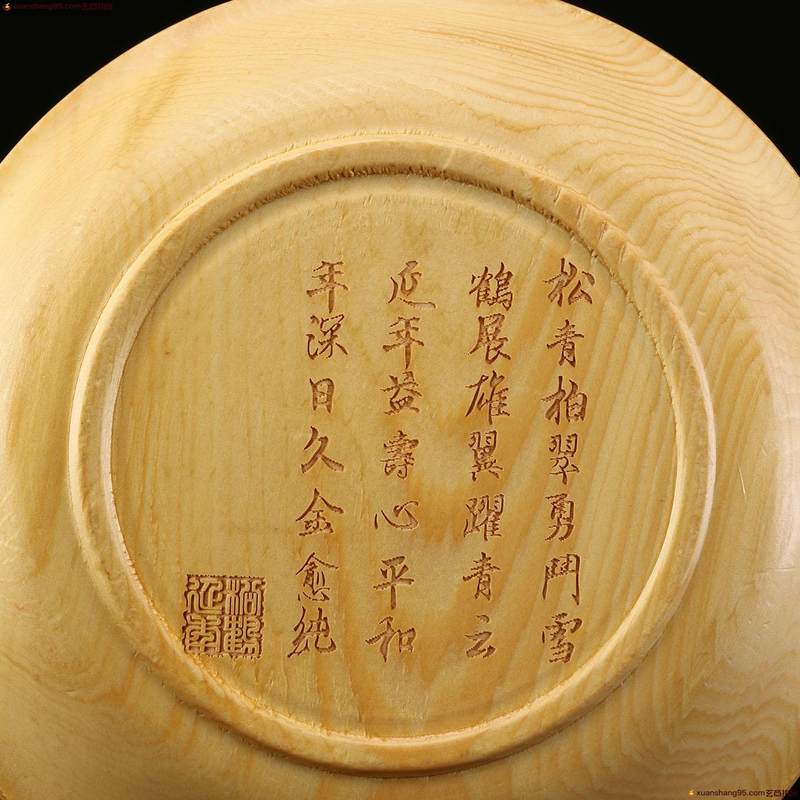 松青柏翠勇鬥雪
鶴展雄翼躍青云
延年益壽心平和
年深日久金愈純
松鶴延年
xuanshang95.com玄商找拍
xuanshang95.com